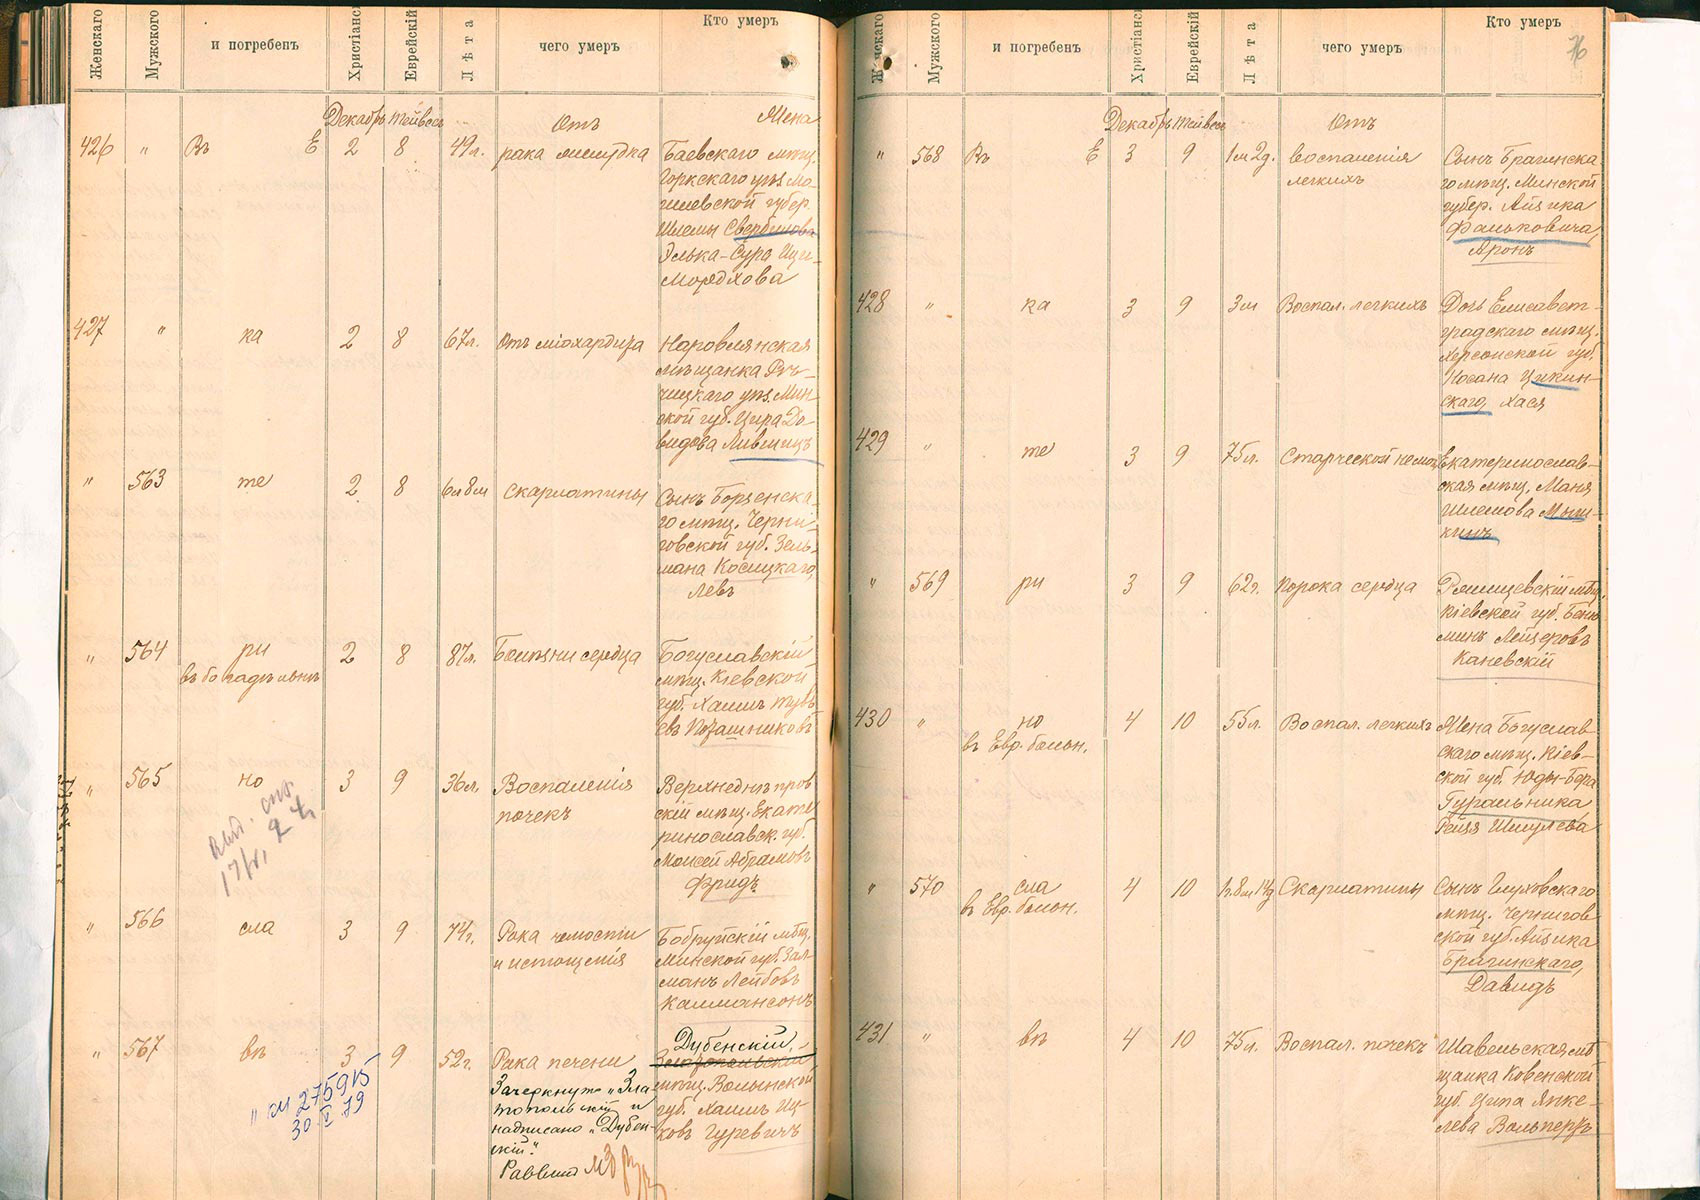 Женскаго
Мужского
и погребенъ
Христіанс
Еврейскій
Лѣта
чего умеръ
Кто умеръ
Декабрь Тейвесъ
Отъ
Жена
426 " Въ Е 2 8 49л. рака желудка
Баевскаго мѣщ.
Горкскаго уѣз. Мо-
гилевской губер.
Шлемы
Элька-Сура Ици-
Мордхова
427 " ка 2 8 67л. Отъ міокардита
Наровлянская
мѣщанка Рѣ-
чицкаго уѣз. Мин-
ской губ. Цира До-
видова Лившицъ
" 563 те 2 8 6л 8м скарлатины
Сынъ Борзенска-
го мѣщ. Черни-
говской губ. Зель-
мана Косицкаго,
Левъ
" 564 ри 2 8 87л. Болѣзни сердца
въ богадѣльнѣ
Богуславскій
мѣщ. Кіевской
губ. Хаимъ Тувь-
евъ
" 565 но 3 9 36л. Воспаленія
почекъ
Верхнеднѣпров
скій мѣщ. Екате
ринославск. губ.
Моисей Абрамовъ
Фридъ
" 566 сла 3 9 74г. Рака челюсти
и истощенія
Бобруйскій мѣщ.
Минской губ. Зал-
манъ Лейбовъ
Калмансонъ
" 567 вѣ 3 9 52г. Рака печени
Дубенскій,
Златопольскій
мѣщ. Волынской
губ. Хаимъ Иц-
ковъ Гуревичъ
Зачеркнуто „Зла-
топольскій и
надписано „Дубен-
скій."
Раввинъ
275915
30 V 79
Женскаго
Мужского
и погребенъ
Христіанс
Еврейскій
Лѣта
чего умеръ
Кто умеръ
76
Декабрь Тейвесъ
Отъ
" 568 Въ Е 3 9 1м 2д. Воспаленія
легкихъ
Сынъ Брагинска
го мѣщ. Минской
губер. Айзика
Фальковича,
Аронъ
428 " ка 3 9 3м Воспал. легкихъ
Дочь Елисавет-
градскаго мѣщ.
Херсонской губ.
Носана Цикин-
скаго, Хася
429 " те 3 9 75л. Старческой немощ
Екатеринослав-
ская мѣщ. Маня
Шлемова Мыш-
кинъ
" 569 ри 3 9 62г. Порока сердца
Ржищевскій мѣщ.
Кіевской губ. Беню
минъ Лейзеровъ
Каневскій
430 " но 4 10 55л. Воспал. легкихъ
въ Евр. больн.
Жена Богуслав
скаго мѣщ. Кіев-
ской губ. Юды-Бера
Гуральника
Рейзя Шмулева
" 570 сла 4 10 Скарлатины
въ Евр. больн.
Сынъ Глуховскаго
мѣщ. Чернигов
ской губ. Айзика
Брагинскаго,
Давидъ
431 " вѣ 4 10 75л. Воспал. почекъ
Шавельская мѣ
щанка Ковенской
губ. Ципа Янке-
лева Вольперъ